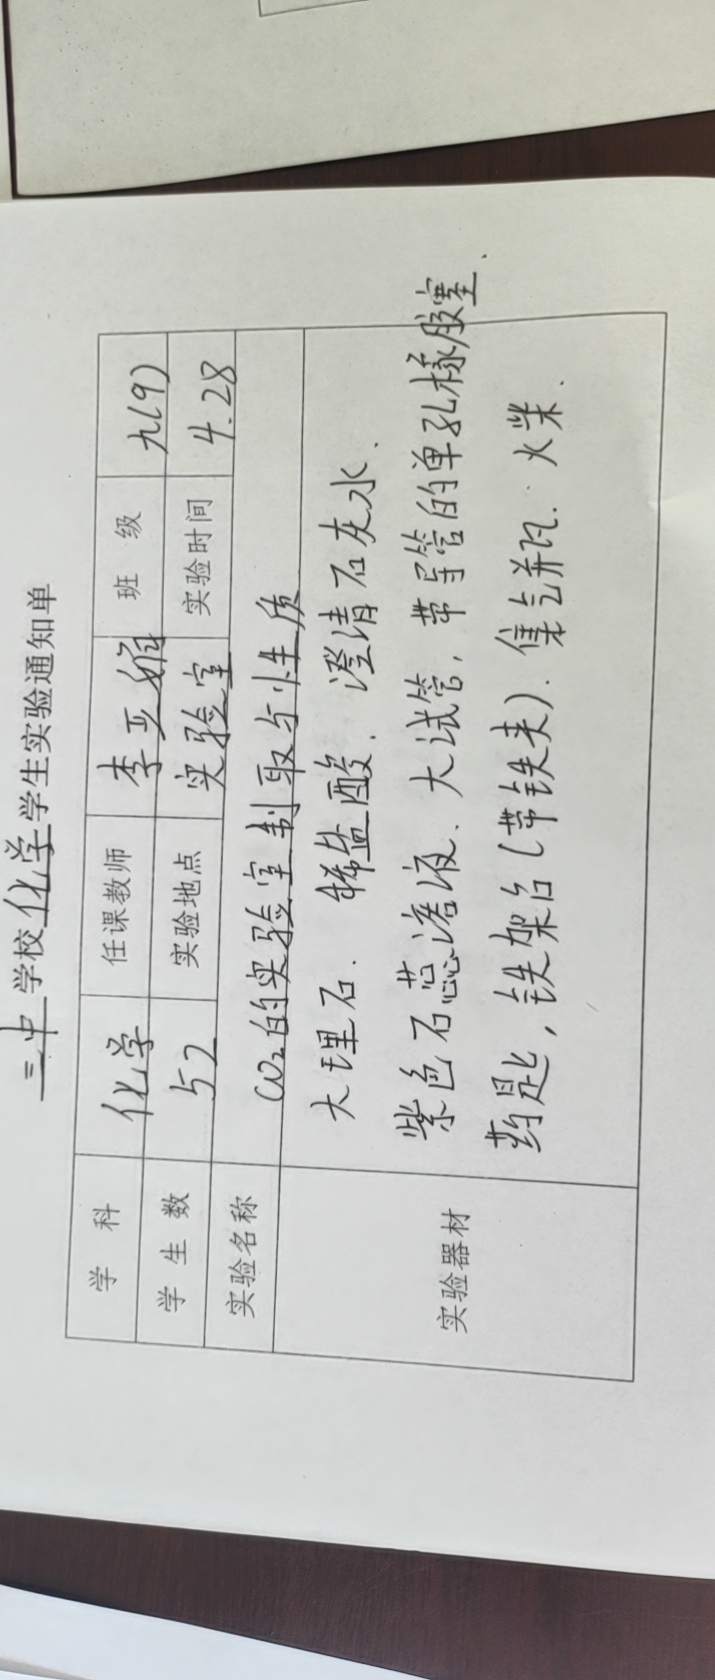 三中学校化学学生实验通知单
学科 化学 任课教师 李亚维 班级 九(9)
学生数 52 实验地点 实验室 实验时间 4.28
实验名称 CO₂的实验室制取与性质
实验器材
大理石、稀盐酸、澄清石灰水、
紫色石蕊溶液、大试管,带导管的单孔橡胶塞、
药匙,铁架台(带铁夹)、集气瓶、火柴.